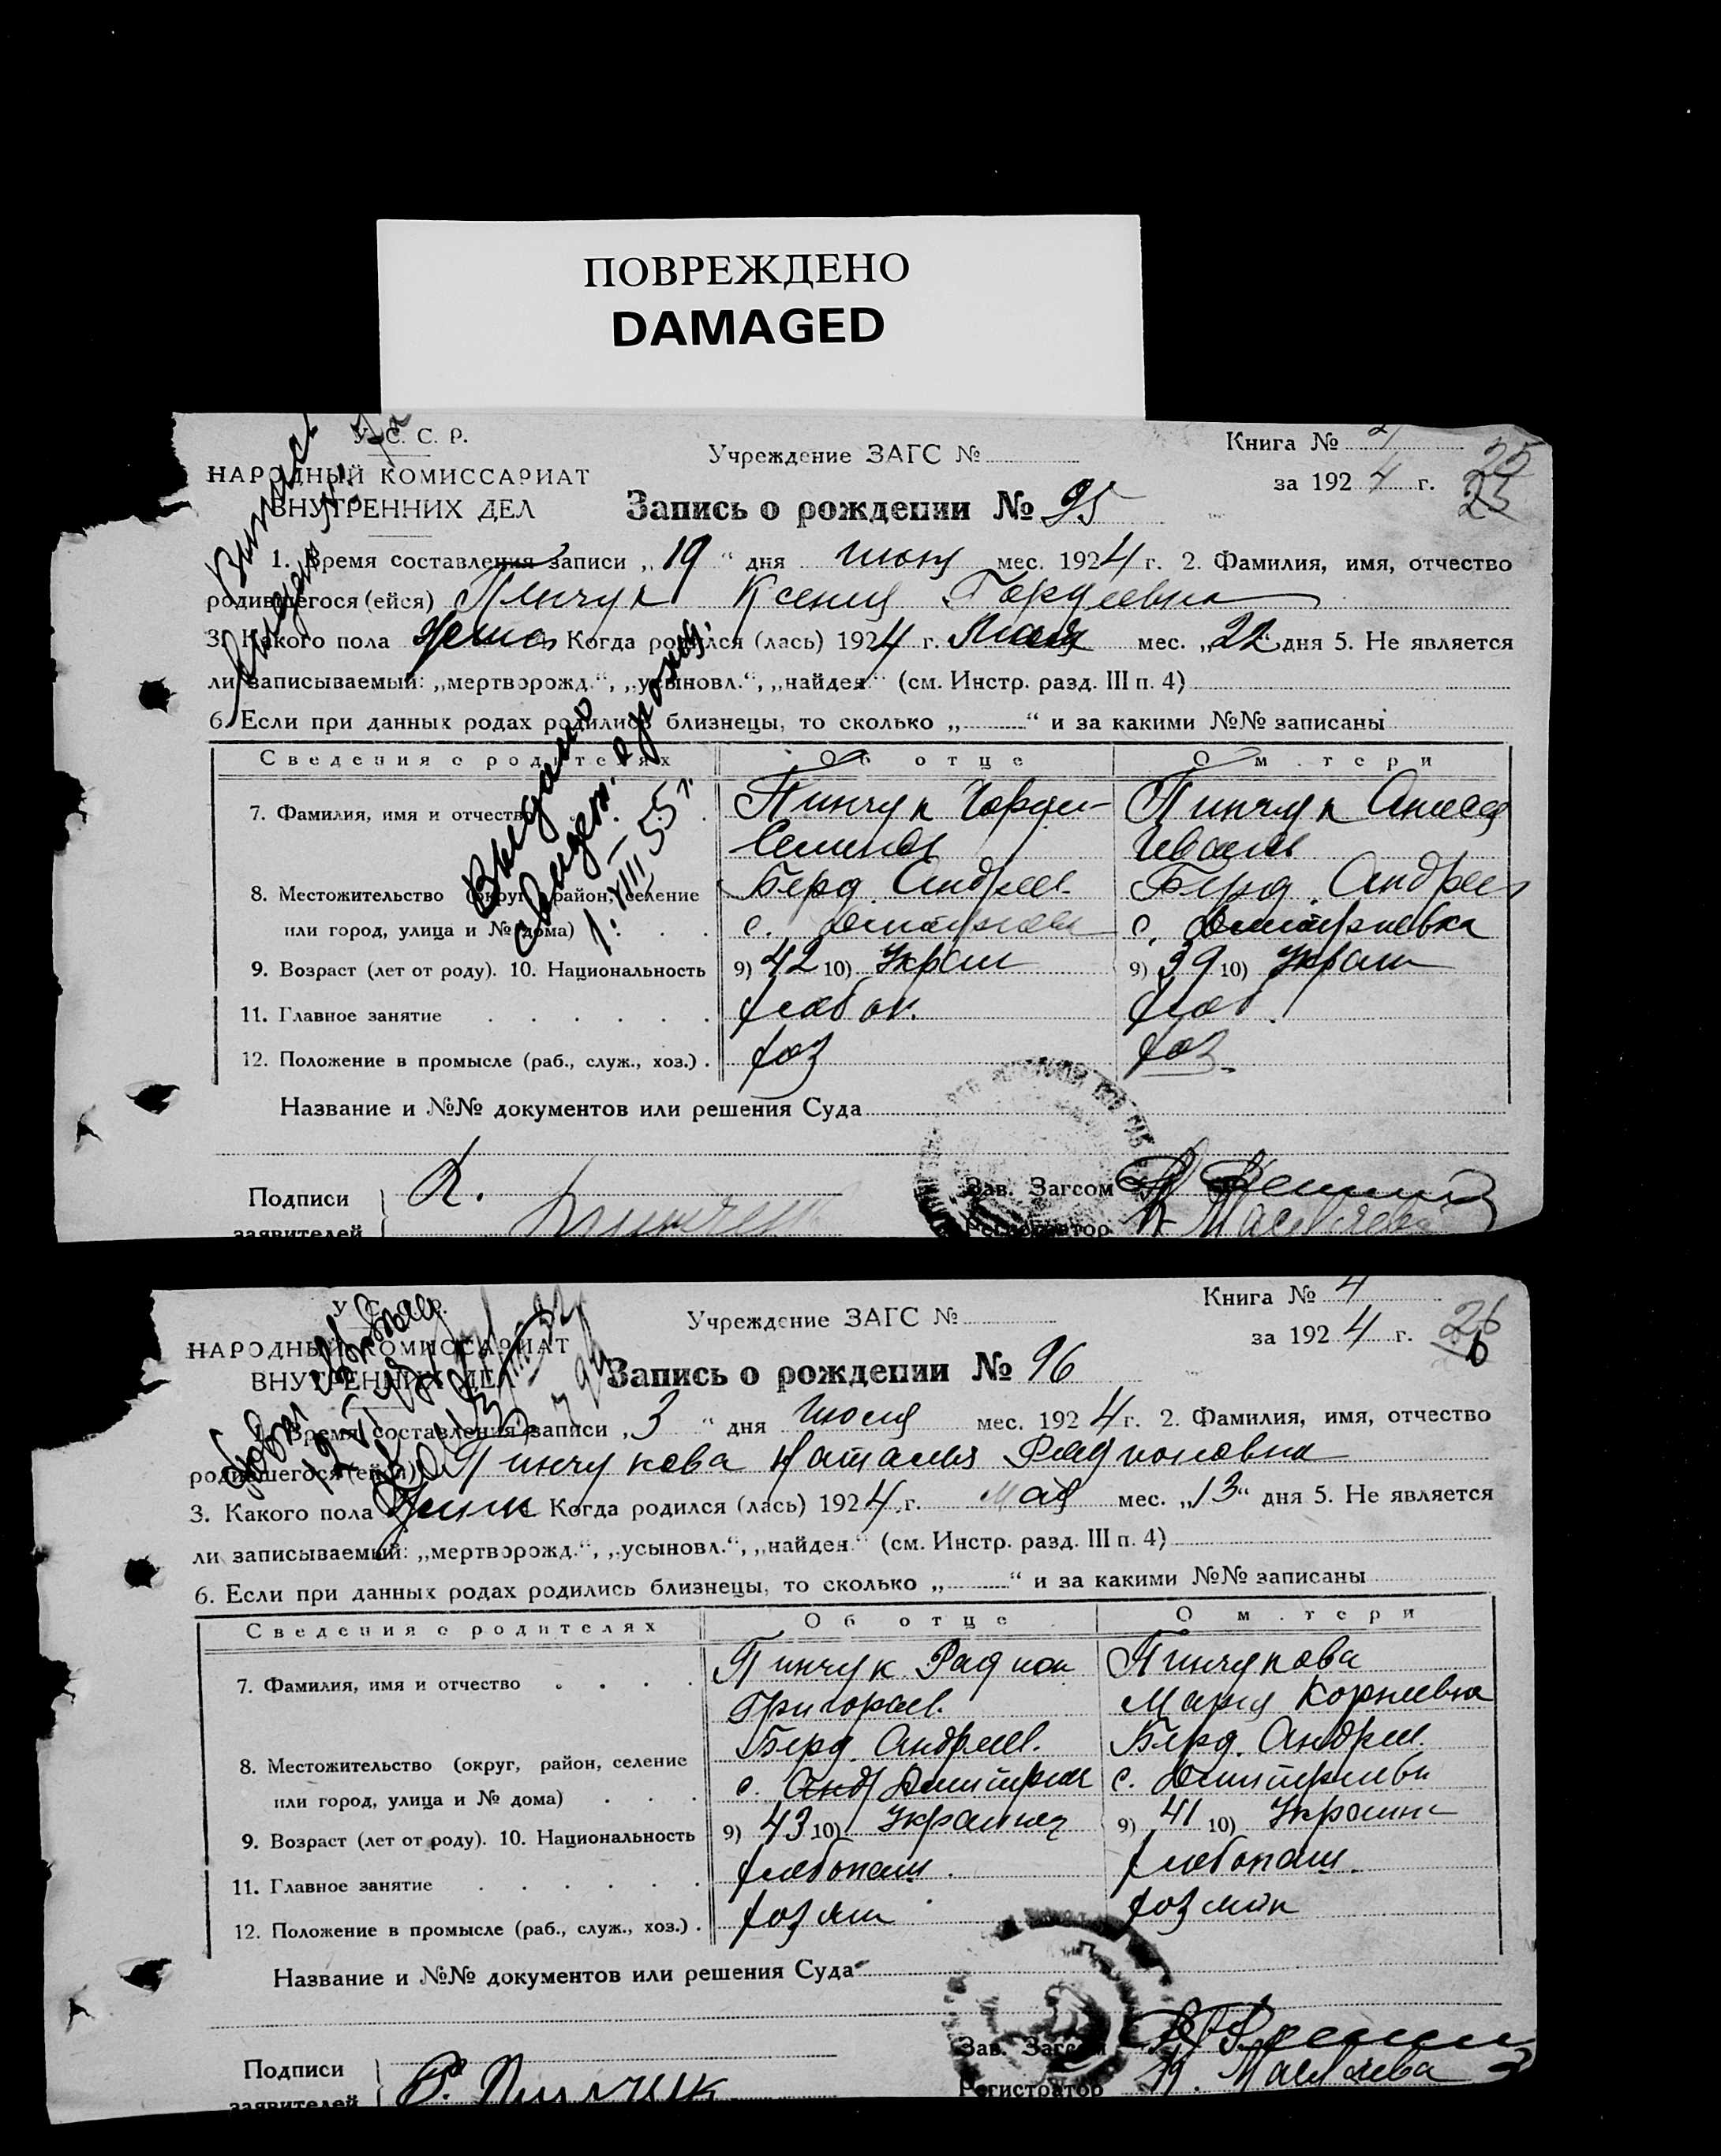 ПОВРЕЖДЕНО
DAMAGED
У. С. С. Р.
НАРОДНЫЙ КОМИССАРИАТ
ВНУТРЕННИХ ДЕЛ
Учреждение ЗАГС №
Книга № 4
за 1924 г.
25
Запись о рождении № 95
1. Время составления записи „19“ дня июня мес. 1924 г. 2. Фамилия, имя, отчество
родившегося (ейся) Пинчук Ксения Гордеевна
3. Какого пола женс Когда родился (лась) 1924 г. Мая мес. „22“ дня 5. Не является
ли записываемый: „мертворожд.“, „усыновл.“, „найден.“ (см. Инстр. разд. III п. 4)
6. Если при данных родах родились близнецы, то сколько „ “ и за какими №№ записаны
Выдано
свидет.
1.VIII 55 г.
Сведения о родителях Об отце О матери
7. Фамилия, имя и отчество Пинчук Горди Пинчук
8. Местожительство (округ, район, селение Берд. Андреев. Берд. Андреев
или город, улица и № дома) с. с. Дмитриевка
9. Возраст (лет от роду). 10. Национальность 9) 42 10) Украин 9) 39 10) Украин
11. Главное занятие хлебоп. хлеб.
12. Положение в промысле (раб., служ., хоз.) хоз хоз.
Название и №№ документов или решения Суда
Подписи
заявителей
Зав. Загсом
Регистратор
У. С. С. Р.
НАРОДНЫЙ КОМИССАРИАТ
ВНУТРЕННИХ ДЕЛ
Учреждение ЗАГС №
Книга № 4
за 1924 г.
26
Запись о рождении № 96
1. Время составления записи „3“ дня Июля мес. 1924 г. 2. Фамилия, имя, отчество
родившегося (ейся) Пинчукова Наталья Радионовна
3. Какого пола Женск Когда родился (лась) 1924 г. мая мес. „13“ дня 5. Не является
ли записываемый: „мертворожд.“, „усыновл.“, „найден.“ (см. Инстр. разд. III п. 4)
6. Если при данных родах родились близнецы, то сколько „ “ и за какими №№ записаны
Сведения о родителях Об отце О матери
7. Фамилия, имя и отчество Пинчук Радион Пинчукова
Григорьев. Мария Корнеевна
8. Местожительство (округ, район, селение Берд. Андреев. Берд. Андреев.
или город, улица и № дома) с. с.
9. Возраст (лет от роду). 10. Национальность 9) 43 10) Украинец 9) 41 10) Украин
11. Главное занятие хлебопаш. хлебопаш.
12. Положение в промысле (раб., служ., хоз.) хозяин
Название и №№ документов или решения Суда
Подписи
заявителей
Р. Пинчук
Зав. Загсом
Регистратор